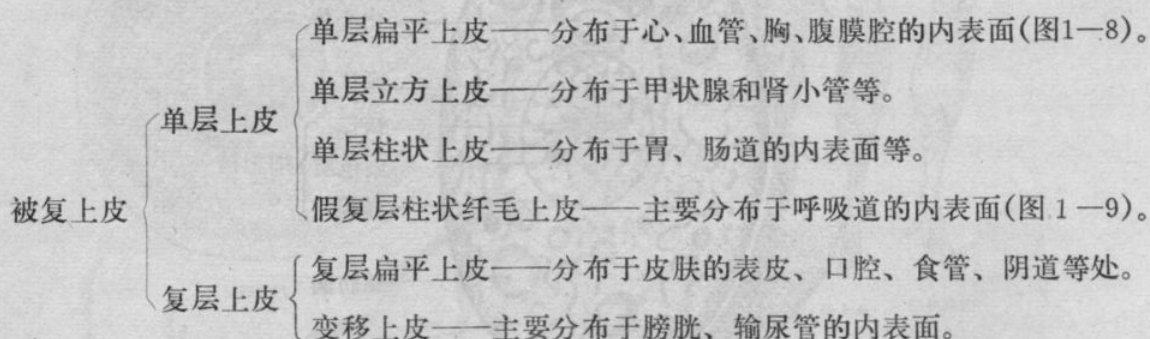 单层扁平上皮——分布于心、血管、胸、腹膜腔的内表面(图1—8)。
单层立方上皮——分布于甲状腺和肾小管等。
单层上皮
单层柱状上皮——分布于胃、肠道的内表面等。
被复上皮
假复层柱状纤毛上皮——主要分布于呼吸道的内表面(图1—9)。
复层扁平上皮——分布于皮肤的表皮、口腔、食管、阴道等处。
复层上皮
变移上皮——主要分布于膀胱、输尿管的内表面。